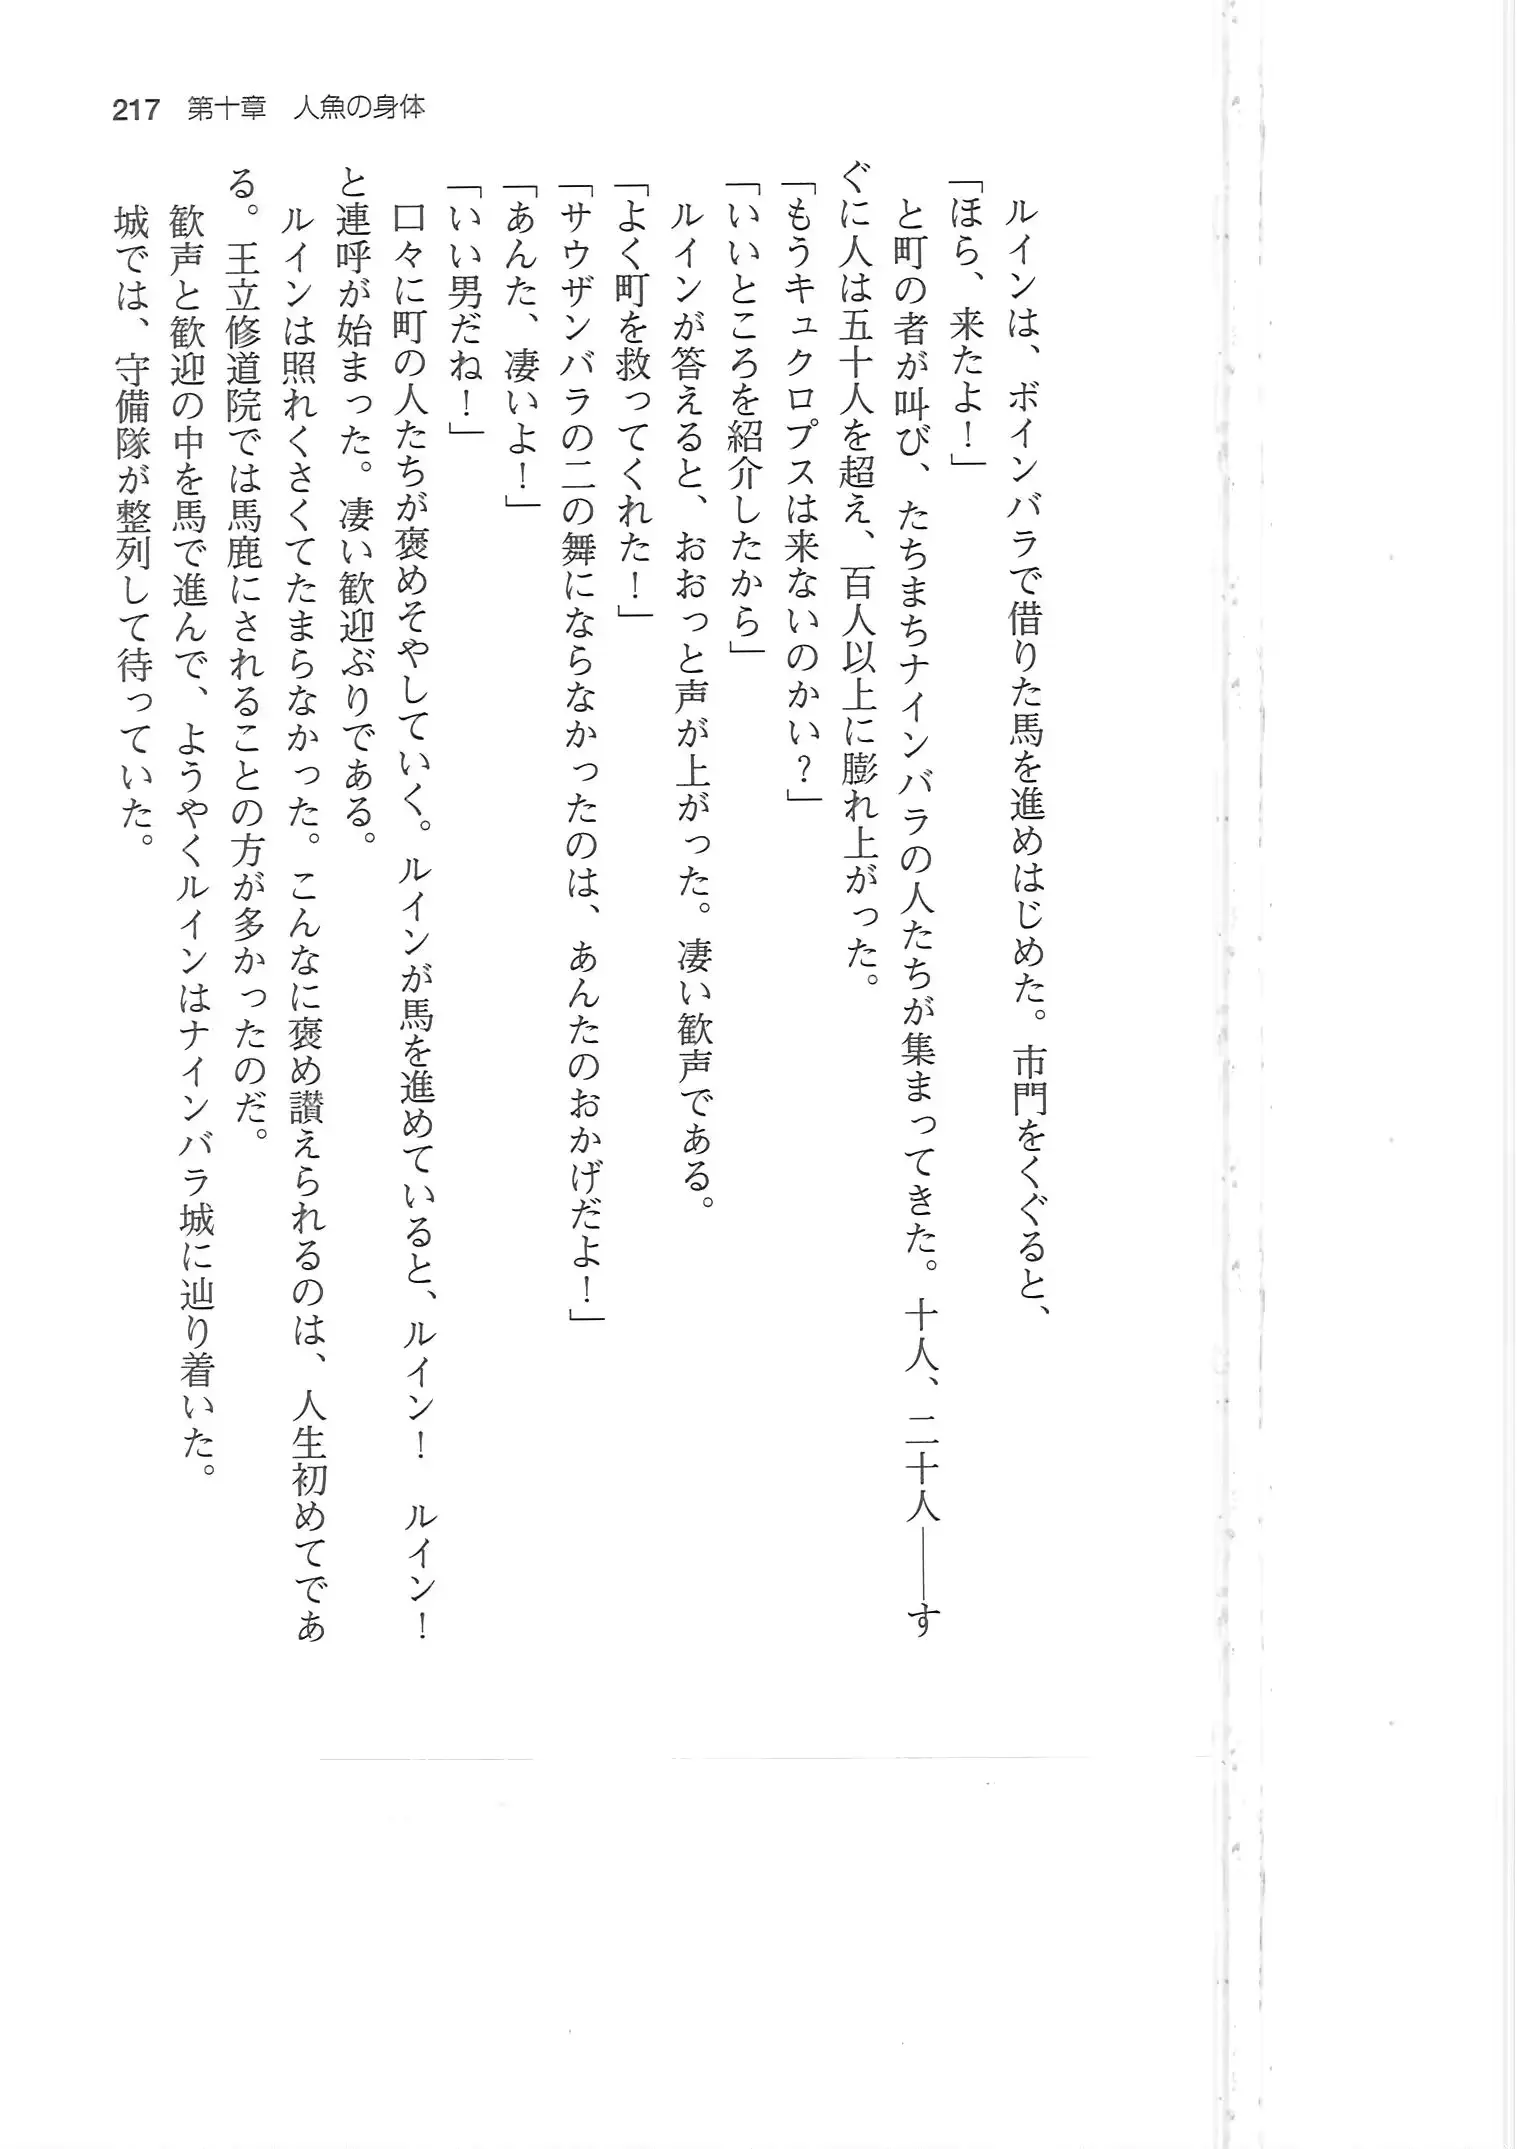 217　第十章　人魚の身体
　ルインは、ボインバラで借りた馬を進めはじめた。市門をくぐると、
「ほら、来たよ！」
　と町の者が叫び、たちまちナインバラの人たちが集まってきた。十人、二十人――す
ぐに人は五十人を超え、百人以上に膨れ上がった。
「もうキュクロプスは来ないのかい？」
「いいところを紹介したから」
　ルインが答えると、おおっと声が上がった。凄い歓声である。
「よく町を救ってくれた！」
「サウザンバラの二の舞にならなかったのは、あんたのおかげだよ！」
「あんた、凄いよ！」
「いい男だね！」
　口々に町の人たちが褒めそやしていく。ルインが馬を進めていると、ルイン！　ルイン！
と連呼が始まった。凄い歓迎ぶりである。
　ルインは照れくさくてたまらなかった。こんなに褒め讃えられるのは、人生初めてであ
る。王立修道院では馬鹿にされることの方が多かったのだ。
　歓声と歓迎の中を馬で進んで、ようやくルインはナインバラ城に辿り着いた。
　城では、守備隊が整列して待っていた。